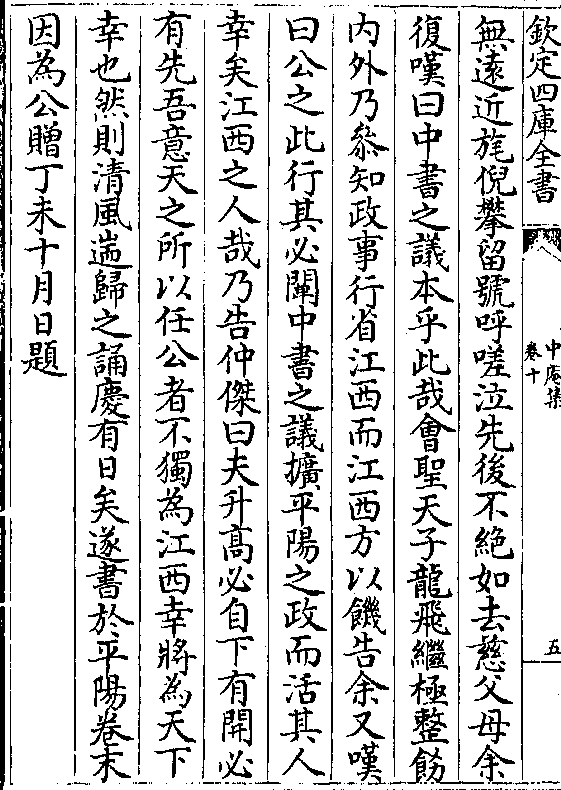 欽定四庫全書
中庵集
卷十
五
無遠近旄倪攀留號呼嗟泣先後不絶如去慈父母余
復嘆曰中書之議本乎此哉會聖天子龍飛繼極整飭
内外乃叅知政事行省江西而江西方以饑告余又嘆
曰公之此行其必闡中書之議擴平陽之政而活其人
幸矣江西之人哉乃告仲傑曰夫升髙必自下有開必
有先吾意天之所以任公者不獨為江西幸將為天下
幸也然則清風遄歸之誦慶有日矣遂書於平陽卷末
因為公贈丁未十月日題